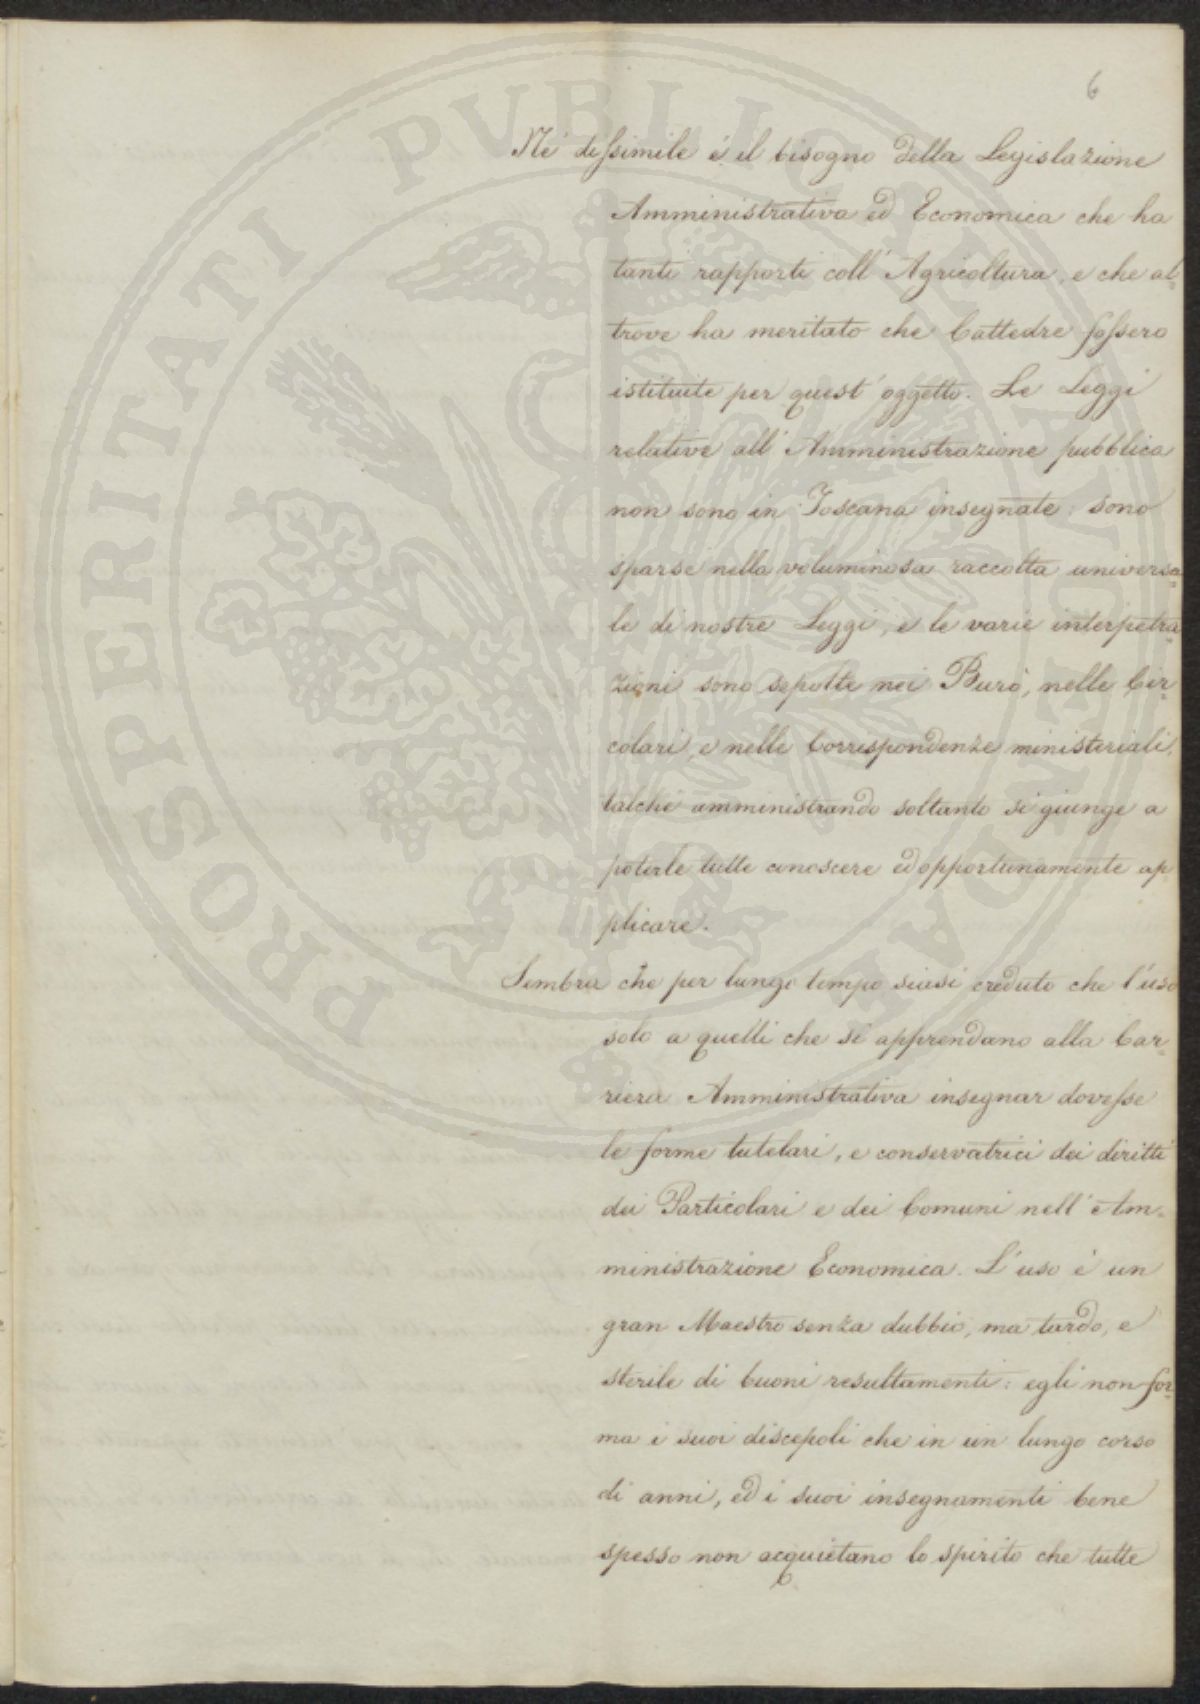 6
Né dissimile é il bisogno della Legislazione
Amministrativa ed Economica che ha
tanti rapporti coll'Agricoltura, e che al=
trove ha meritato che Cattedre fossero
istituite per quest'oggetto. Le Leggi
relative all'Amministrazione pubblica
non sono in Toscana insegnate: sono
sparse nella voluminosa raccolta universa=
le di nostre Leggi, e le varie interpetra=
zioni sono sepolte nei Burò, nelle Cir=
colari, e nelle Corrispondenze ministeriali,
talché amministrando soltanto si giunge a
poterle tutte conoscere ed opportunamente ap=
plicare.
Sembra che per lungo tempo siasi creduto che l'uso
solo a quelli che si apprendano alla Car=
riera Amministrativa insegnar dovesse
le forme tutelari, e conservatrici dei diritti
dei Particolari e dei Comuni nell'Am=
ministrazione Economica. L'uso é un
gran Maestro senza dubbio, ma tardo, e
sterile di buoni resultamenti: egli non for=
ma i suoi discepoli che in un lungo corso
di anni, ed i suoi insegnamenti bene
spesso non acquietano lo spirito che tutte
PROSPERITATI PUBLICAE AUGENDAE